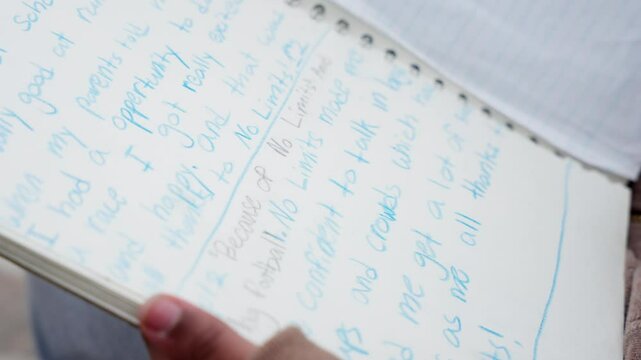 School
really good at run
when my parents told
I had a opportunity to d
a race I got really excited
and happy. and that was
thanks to No Limits. 12
12 "Because of No Limits
my football. No Limits made me
confident to talk in
and crowds which
d me get a lot of
as me all thanks
s!